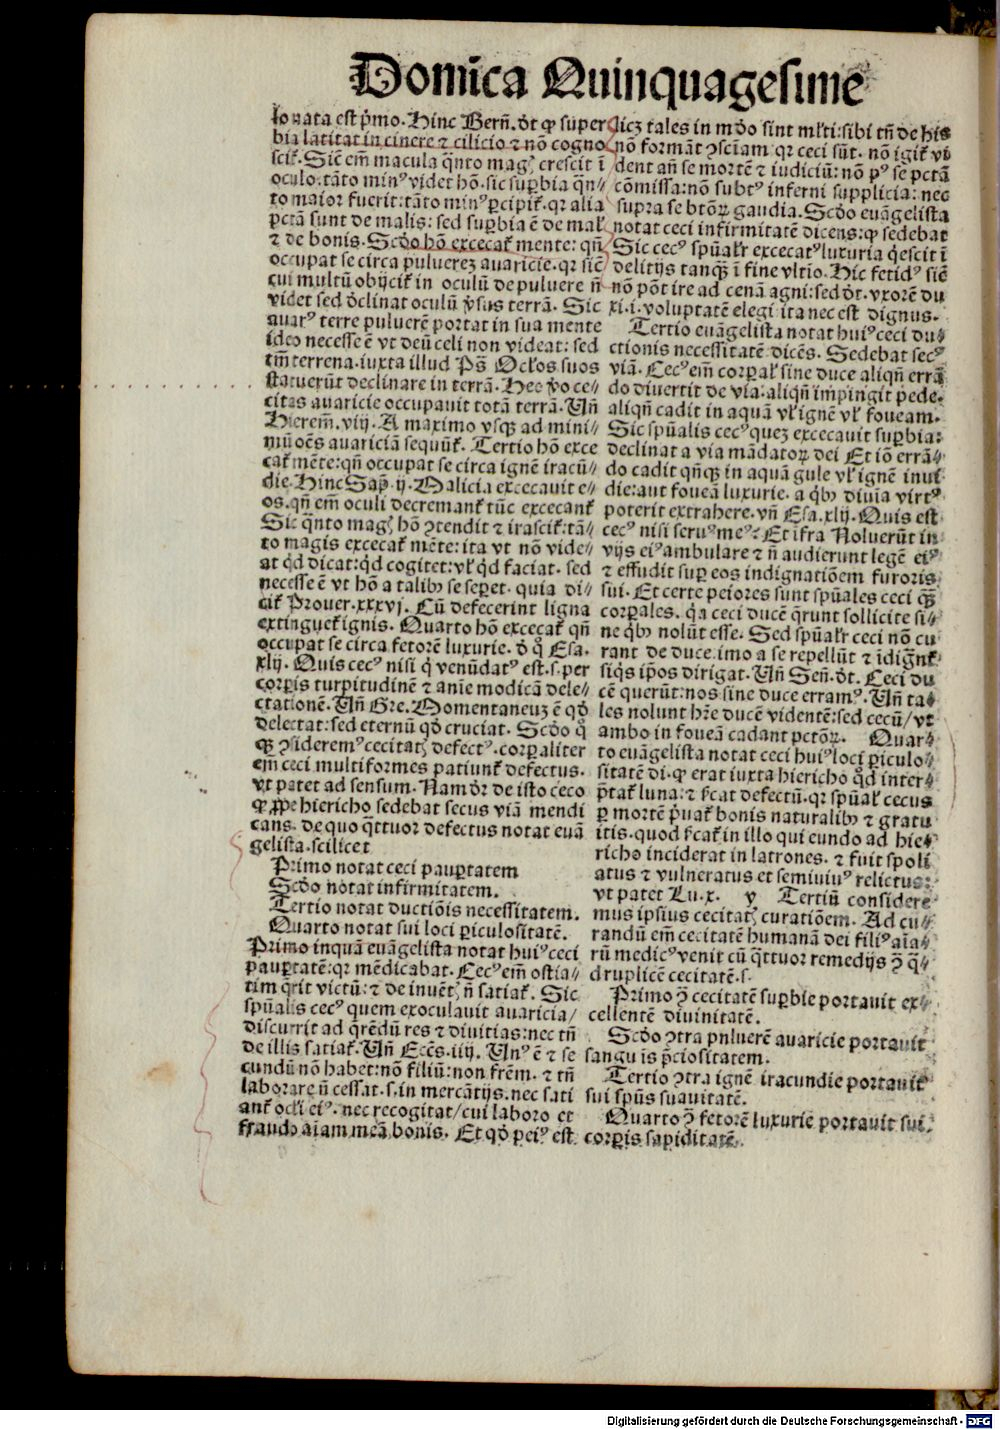 Domīca Quinquagesime
lo nata est p̄mo. Hinc Berñ. dt̄ ꝙ super
bia latitat in cinere ⁊ cilicio ⁊ nō cogno
scit̄. Sic̄ em̄ macula q̄nto magꝭ crescit ī
oculo. tāto min⁹ videt hō. sic supbia q̄n//
to maior fuerit: tāto min⁹ ꝑcipit̄. qr alia
pctā sunt de malis: sed supbia ē de mal̄
⁊ de bonis. Scd̄o hō excecat̄ mente: qñ
occupat se circa puluerez avaricie. qr sic̄
cui multū obijcit̄ in oculū de puluere ñ
videt sed dclinat oculū v̄sus terrā. Sic
auar⁹ terre puluerē portat in sua mente
ideo necesse ē vt deū celi non videat: sed
tm̄ terrena. iuxta illud Ps̄ Oclōs suos
statuerūt declinare in terrā. Hec v̄o ce-
citas avaricie occupauit totā terrā. Uñ
Hierem̄. viij. A maximo vsqꝫ ad mini-
mū oēs auariciā sequūt̄. Tertio hō exce
cat̄ mēte: qñ occupat se circa ignē iracū//
die. Hinc Sap̄. ij. Malicia excecauit e-
os. qñ em̄ oculi decremant̄ tūc excecant̄
Sic q̄nto magꝭ hō ꝯtendit ⁊ irascit̄. tā//
to magis excecat̄ mēte: ita vt nō vide//
at qd̄ dicat: qd̄ cogitet: vl̄ qd̄ faciat. sed
necesse ē vt hō a talibꝫ se seꝑet. quia di-
cit̄ Prouer. xxxvj. Cū defecerint ligna
extinguet̄ ignis. Quarto hō excecat̄ qñ
occupat se circa fetorē luxurie. d̄ q̊ Esa.
xlij. Quis cec⁹ nisi q̄ venūdat⁹ est. s. per
corꝑis turpitudinē ⁊ anie modicā dele-
ctationē. Uñ Gre. Momentaneuꝫ ē qd̄
delectat: sed eternū qd̄ cruciat. Scd̄o q̊
qꝫ ꝯsiderem⁹ cecitatꝭ defect⁹. corꝑaliter
em̄ ceci multiformes patiunt̄ defectus.
vt patet ad sensum. Nam dr̄ de isto ceco
ꝙ ꝓpe hiericho sedebat secus viā mendi
cans. de quo q̄ttuor defectus notat euā
gelista. scilicet
Primo notat ceci pauꝑtatem
Scd̄o notat infirmitatem.
Tertio notat ductiōis necessitatem.
Quarto notat sui loci ꝑiculositatē.
Primo inquā euāgelista notat hui⁹ ceci
pauꝑtatē: qr mēdicabat. Cec⁹ em̄ ostia-
tim q̄rit victū: ⁊ de inuētꝭ ñ satiat̄. Sic
spūalis cec⁹ quem exoculauit auaricia/
discurrit ad q̄rēdū res ⁊ diuitias: nec tn̄
de illis satiat̄. Uñ Ecc̄s. iiij. Un⁹ ē ⁊ se
cundū nō habet: nō filiū: non frēm. ⁊ tn̄
laborare ñ cessat. s. in mercātijs. nec sati
ant̄ ocl̄i ei⁹. nec recogitat/cui laboro et
fraudo aīam meā bonis. Et qd̄ pei⁹ est.
licꝫ tales in mdo sint ml̄ti: sibi tn̄ de his
nō formāt ꝯscīam qr ceci sūt. nō igit̄ vi
dent añ se mortē ⁊ iudiciū: nō p⁹ se pctā
cōmissa: nō subt⁹ inferni supplicia: nec
supra se btōꝝ gaudia. Scd̄o euāgelista
notat ceci infirmitatē dicens: ꝙ sedebat
Sic cec⁹ spūalr̄ excecat⁹ luxuria q̄escit ī
delitijs tanqꝫ ī fine vltio. Hic fetid⁹ sic̄
nō pōt ire ad cenā agni: sed dt̄. vxorē du
xi. i. voluptatē elegi ita nec est dignus.
Tertio euāgelista notat hui⁹ ceci du-
ctionis necessitatē dicēs. Sedebat sec⁹
viā. Cec⁹ em̄ corꝑal̄ sine duce aliqñ errā
do diuertit de via: aliqñ impingit pede.
aliqñ cadit in aquā vl̄ ignē vl̄ foueam.
Sic spūalis cec⁹ quez excecauit supbia:
declinat a via mādatoꝝ dei Et iō errā//
do cadit qñqꝫ in aquā gule vl̄ ignē inui
die: aut foueā luxurie. a qbꝫ diuīa virt⁹
poterit extrahere. vñ Esa. xlij. Quis est
cec⁹ nisi seru⁹ me⁹? Et ifra Noluerūt in
vijs ei⁹ ambulare ⁊ ñ audierunt legē ei⁹
⁊ effudit suꝑ eos indignatiōem furoris
sui. Et certe peiores sunt spūales ceci q̄ꝫ
corꝑales. qa ceci ducē q̄runt sollicite si//
ne qbꝫ nolūt esse. Sed spūalr̄ ceci nō cu
rant de duce. imo a se repellūt ⁊ īdignt̄
siq̄s ip̄os dirigat. Uñ Señ. dt̄. Ceci du
cē querūt: nos sine duce erram⁹. Uñ ta-
les nolunt hr̄e ducē videntē: sed cecū/vt
ambo in foueā cadant pctōꝝ. Quar-
to euāgelista notat ceci hui⁹ loci ꝑiculo//
sitatē di. ꝙ erat iuxta hiericho qd̄ inter//
p̄tat̄ luna: ⁊ sc̄at defectū. qr spūal̄ cecus
ꝑ mortē p̄uat̄ bonis naturalibꝫ ⁊ gratu
itis. quod sc̄at̄ in illo qui eundo ad hie-
richo inciderat in latrones. ⁊ fuit spoli
atus ⁊ vulneratus et semiuiu⁹ relictus:
vt patet Lu. x. y Tertiū considere
mus ipsius cecitatꝭ curatiōem. Ad cu-
randū em̄ cecitatē humanā dei fili⁹ aīa-
rū medic⁹ venit cū q̄ttuor remedijs ꝯ̄ q̄//
druplicē cecitatē. s.
Primo ꝯ̄ cecitatē supbie portauit ex-
cellentē diuinitatē.
Scd̄o ꝯtra pnluerē auaricie portauit
sangu is p̄ciositatem.
Tertio ꝯtra ignē iracundie portauit
sui spūs suauitatē.
Quarto ꝯ̄ fetorē luxurie portauit sui
corꝑis sapiditatē.
Digitalisierung gefördert durch die Deutsche Forschungsgemeinschaft - DFG